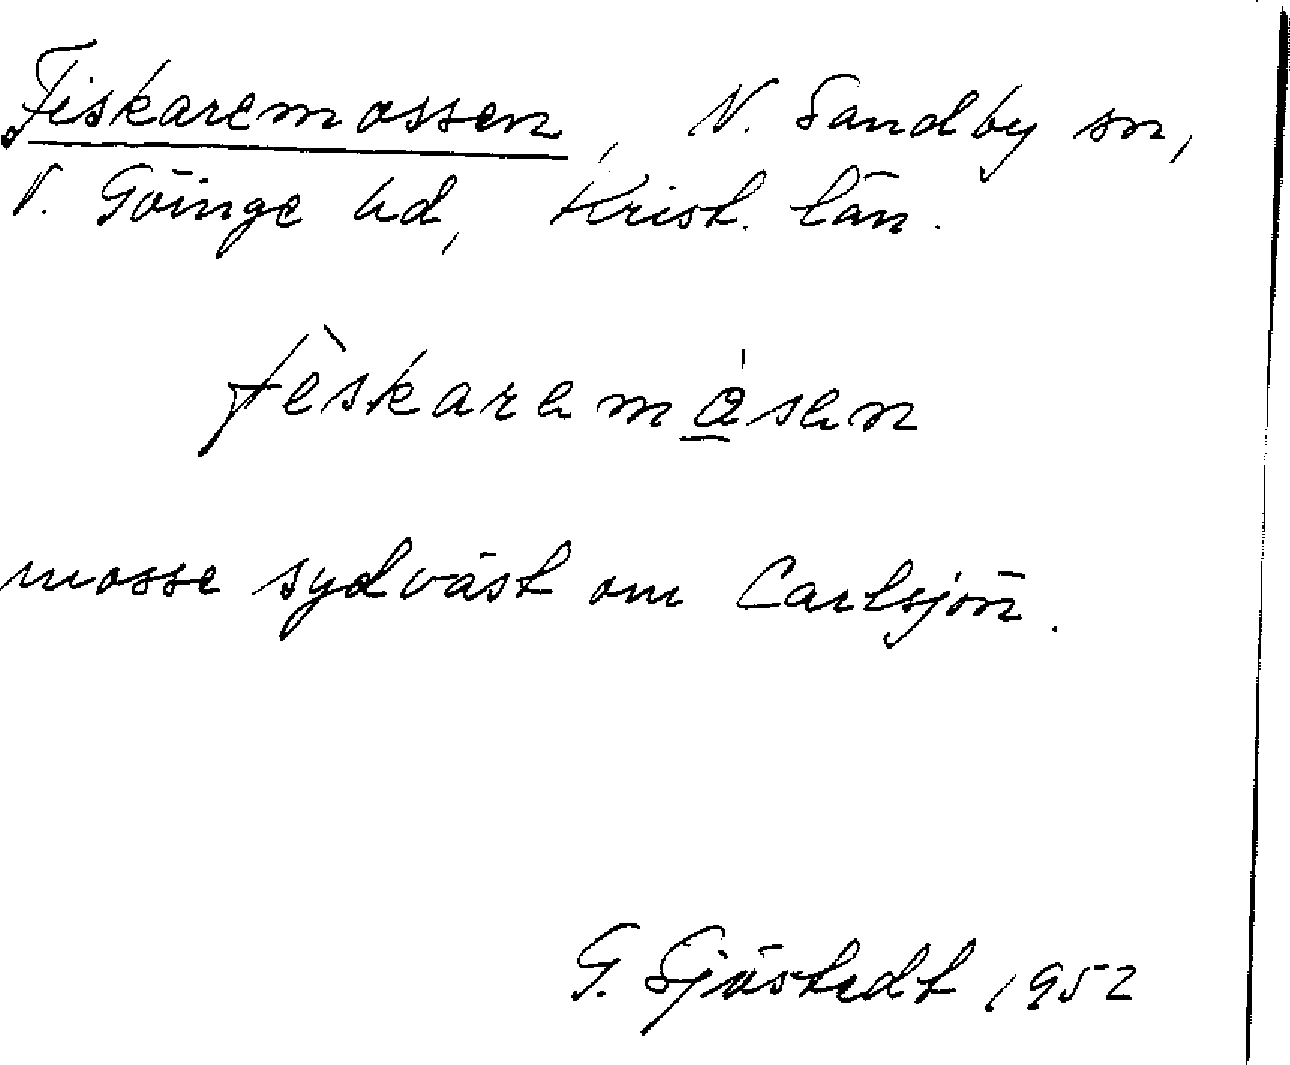 Fiskaremossen, N. Sandby sn,
V. Göinge hd, Krist. län.
fèskaremåsen
mosse sydväst om Carlsjön.
G. Sjöstedt 1952